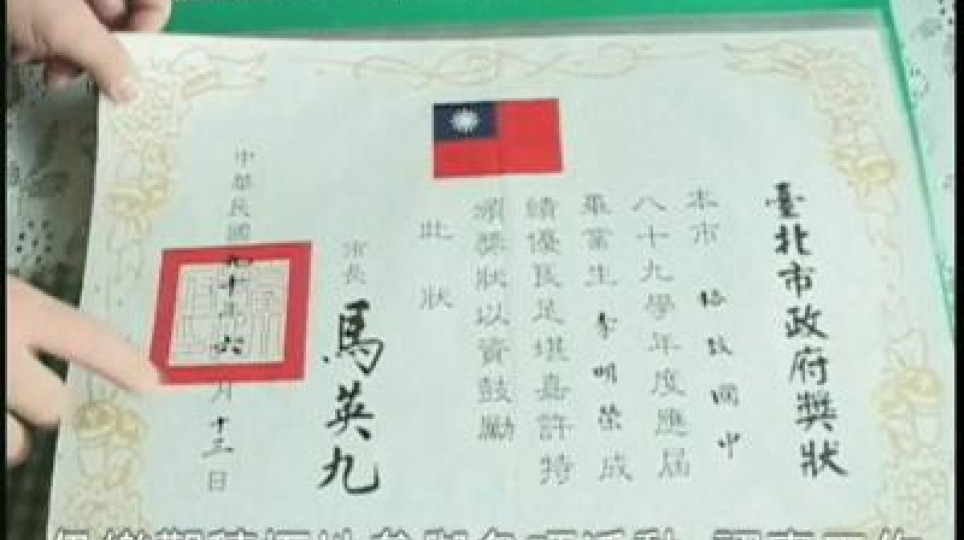 臺北市政府獎狀
本市格致國中
八十九學年度應屆
畢業生李明榮成
績優良足堪嘉許特
頒獎狀以資鼓勵
此狀
市長 馬英九
中華民國九十年六月十三日